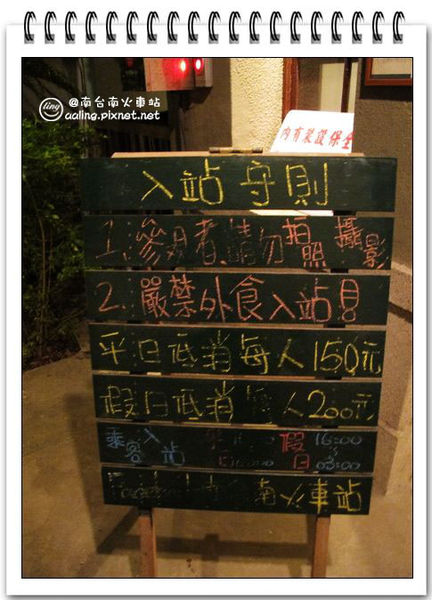 @南台南火車站
ling
aaling.pixnet.net
內有裝設保全
入站守則
1.參月者,請勿拍照攝影
2.嚴禁外食入站!
平日低消每人150元
假日低消 人200元
乘 入 假 16:00
客 站 日 03:00
南火車站